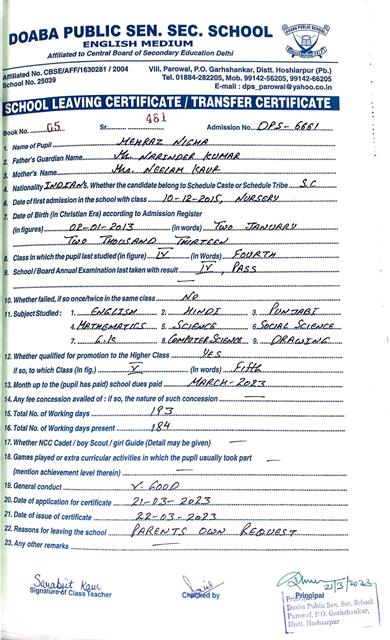 DOABA PUBLIC SEN. SEC. SCHOOL
ENGLISH MEDIUM
Affiliated to Central Board of Secondary Education Delhi
Affiliated No. CBSE/AFF/1630281 / 2004
School No. 25039
Vill. Parowal, P.O. Garhshankar, Distt. Hoshiarpur (Pb.)
Tel. 01884-282205, Mob. 99142-56205, 99142-66205
E-mail : dps_parowal@yahoo.co.in
SCHOOL LEAVING CERTIFICATE / TRANSFER CERTIFICATE
Book No. 65 Sr. 481 Admission No. DPS-6661
1. Name of Pupil MEHRAZ NIGHA
2. Father's Guardian Name Mr. NARINDER KUMAR
3. Mother's Name Mrs. NEELAM KAUR
4. Nationality INDIAN'S. Whether the candidate belong to Schedule Caste or Schedule Tribe S.C
6. Date of first admission in the school with class 10-12-2015, NURSERY
7. Date of Birth (in Christian Era) according to Admission Register
(in figures) 02-01-2013 (in words) TWO JANUARY
TWO THOUSAND THIRTEEN
8. Class in which the pupil last studied (in figure) IV (in Words) FOURTH
9. School / Board Annual Examination last taken with result IV, PASS
10. Whether failed, if so once/twice in the same class NO
11. Subject Studied : 1. ENGLISH 2. HINDI 3. PUNJABI
4. MATHEMATICS 5. SCIENCE 6. SOCIAL SCIENCE
7. G.K 8. COMPUTER SCIENCE 9. DRAWING
12. Whether qualified for promotion to the Higher Class YES
If so, to which Class (in fig.) V (in words) Fifth
13. Month up to the (pupil has paid) school dues paid MARCH-2023
14. Any fee concession availed of : if so, the nature of such concession —
15. Total No. of Working days 193
16. Total No. of Working days present 184
17. Whether NCC Cadet / boy Scout / girl Guide (Detail may be given) —
18. Games played or extra curricular activities in which the pupil usually took part
(mention achievement level therein) —
19. General conduct V. GOOD
20. Date of application for certificate 21-03-2023
21. Date of issue of certificate 22-03-2023
22. Reasons for leaving the school PARENTS OWN REQUEST
23. Any other remarks —
Sarabjit Kaur
Signature of Class Teacher
Checked by
21/3/2023
Principal
Doaba Public Sen. Sec. School
Parowal, P.O. Garhshankar,
Distt. Hoshiarpur